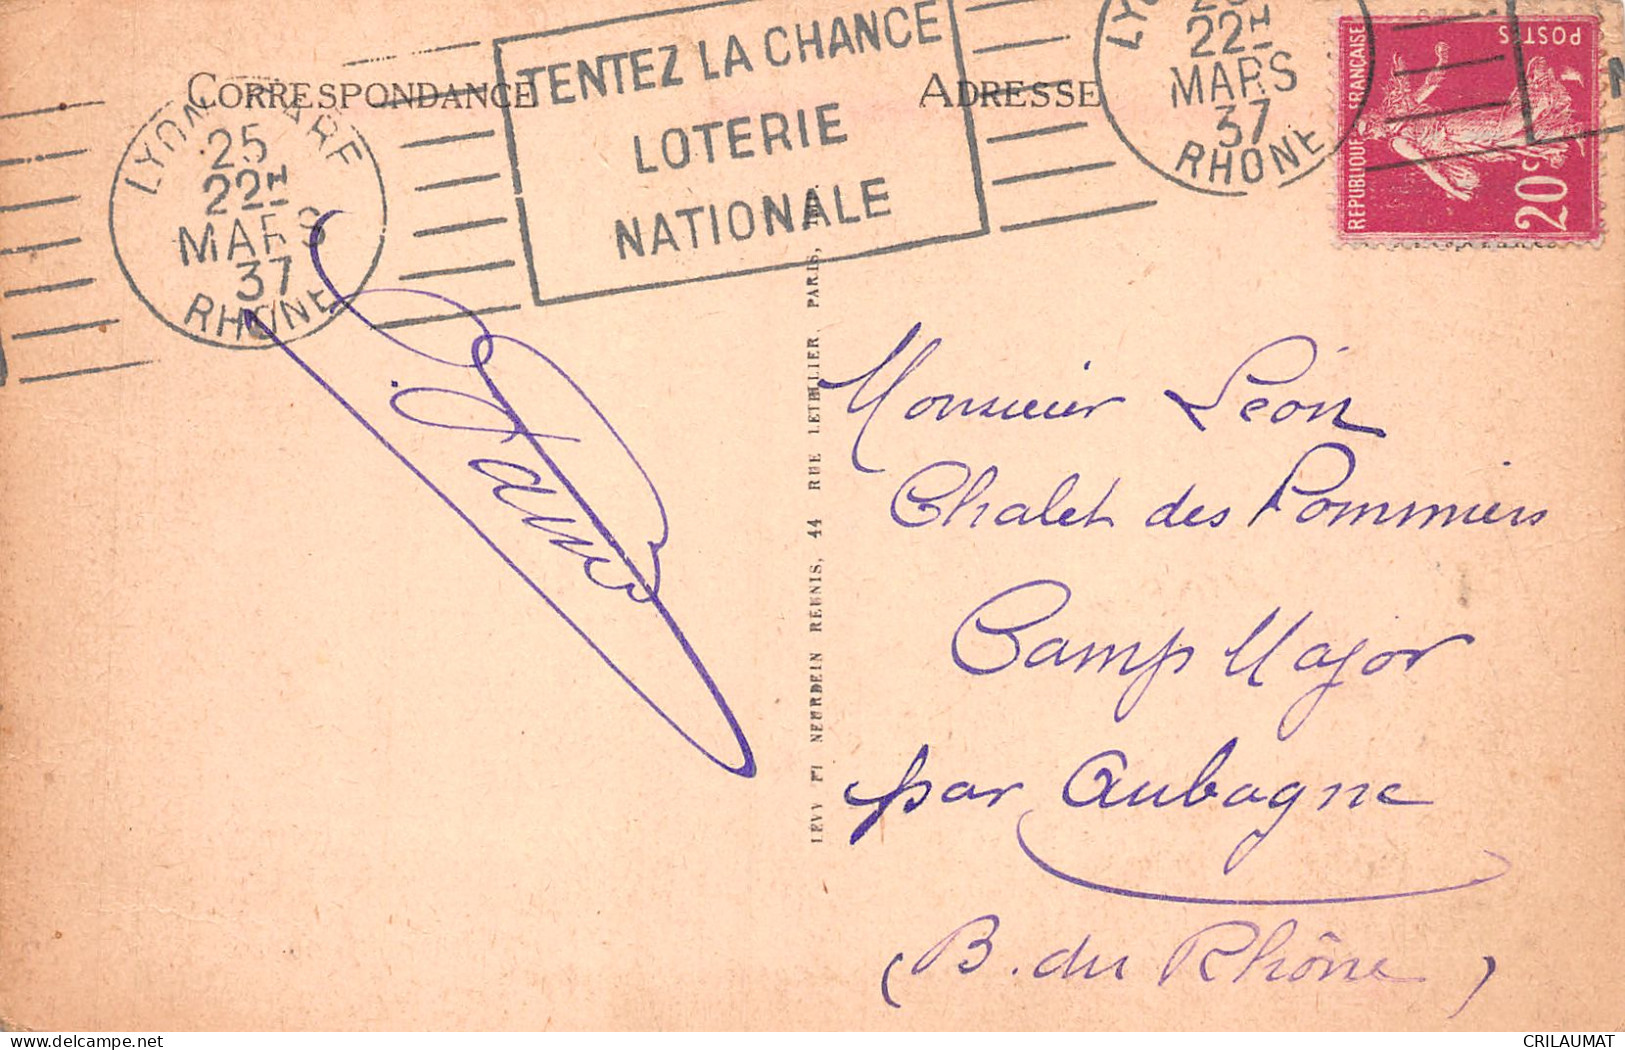 CORRESPONDANCE
ADRESSE
TENTEZ LA CHANCE
LOTERIE
NATIONALE
LYON GARE
25
22H
MARS
37
RHONE
22H
MARS
37
RHONE
REPUBLIQUE FRANÇAISE
POSTES
20c
LEVY ET NEURDEIN REUNIS, 44 RUE LETELLIER, PARIS,
Monsieur Léon
Chalet des Pommiers
Camp Major
par Aubagne
(B. du Rhône)
CRILAUMAT